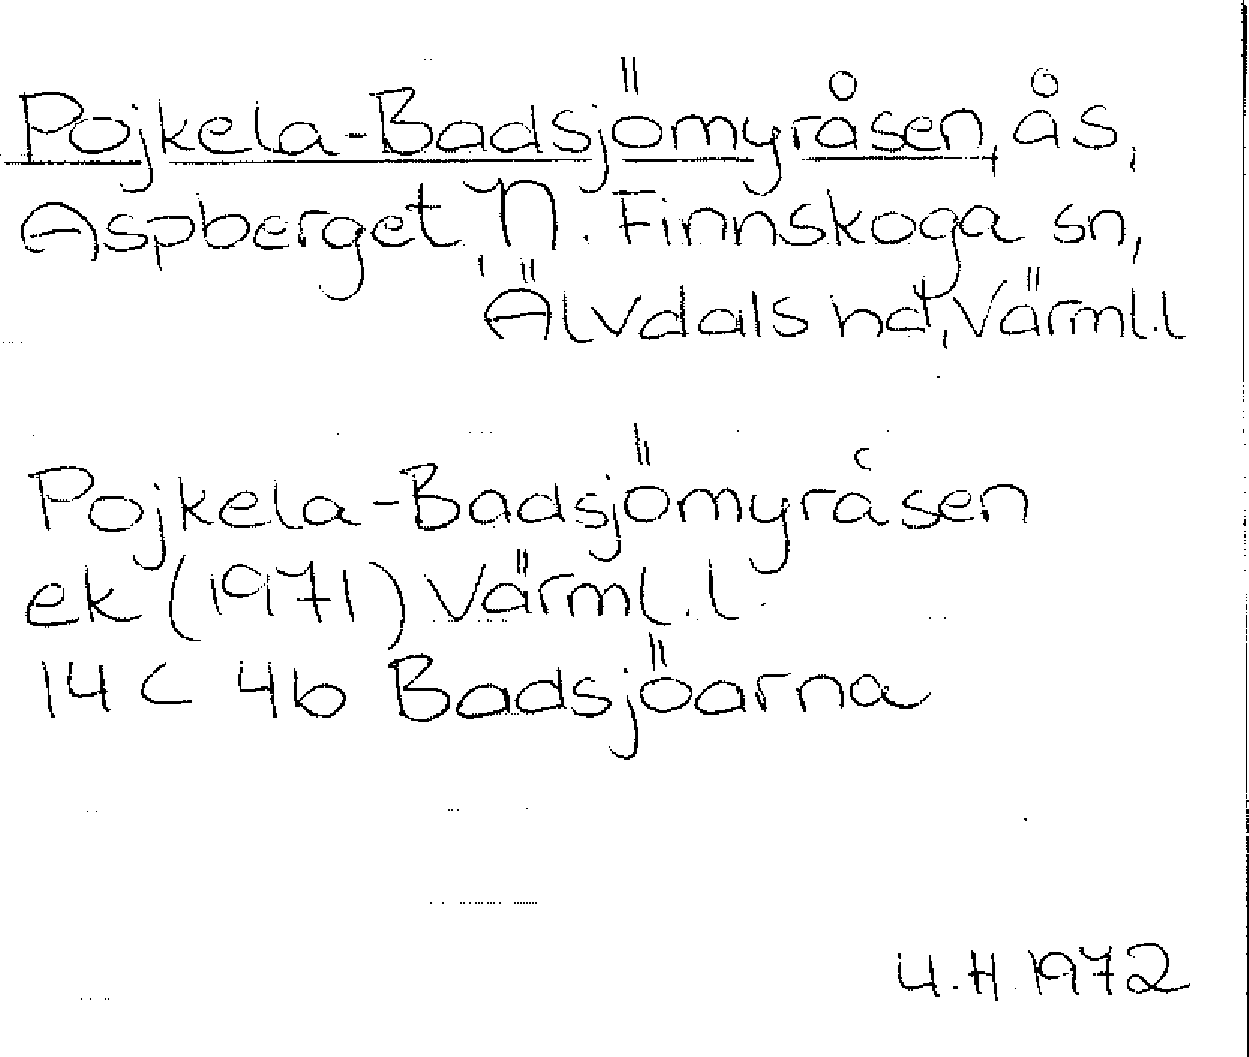 Pojkela-Badsjömyråsen, ås,
Aspberget, N. Finnskoga sn,
Älvdals hd, Värml.l
Pojkela-Badsjömyråsen
ek (1971) Värml.l.
14 C 4b Badsjöarna
U.H. 1972